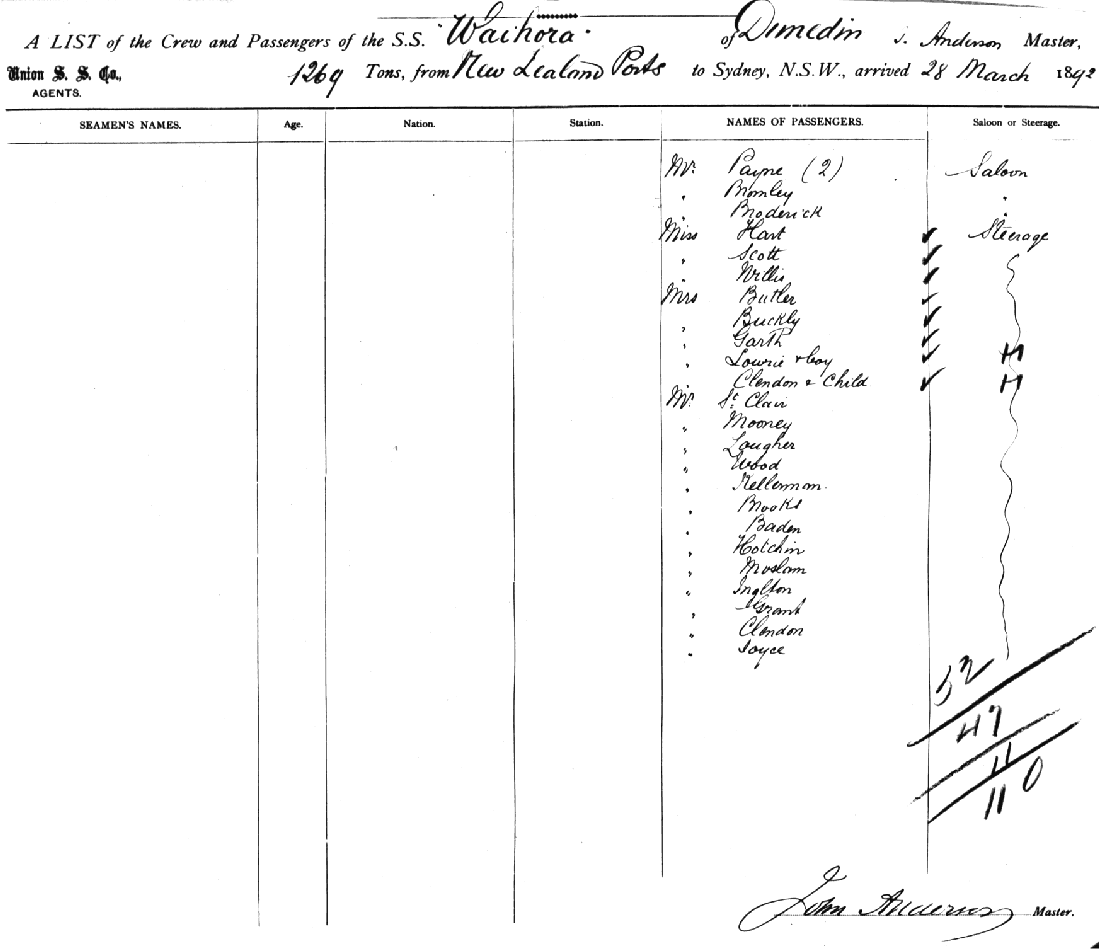 A LIST of the Crew and Passengers of the S.S. "Waihora" of Dunedin J. Anderson Master,
Union S. S. Co., 1269 Tons, from New Zealand Ports to Sydney, N.S.W., arrived 28 March 1892
AGENTS.
SEAMEN'S NAMES. Age. Nation. Station. NAMES OF PASSENGERS. Saloon or Steerage.
Mr. Payne (2) Saloon
" Bromley "
" Broderick "
Miss Hart ✓ Steerage
" Scott ✓
" Willis ✓
Mrs Butler ✓
" Buckly ✓
" Garth ✓
" Lowrie + boy ✓
" Clendon & Child ✓
Mr. St. Clair
" Mooney
" Lougher
" Wood
" Kellerman.
" Brooks
" Baden
" Hotchin
" Moslam
" Inglton
" Grant
" Clendon
" Joyce
52
47
11
110
John Anderson Master.